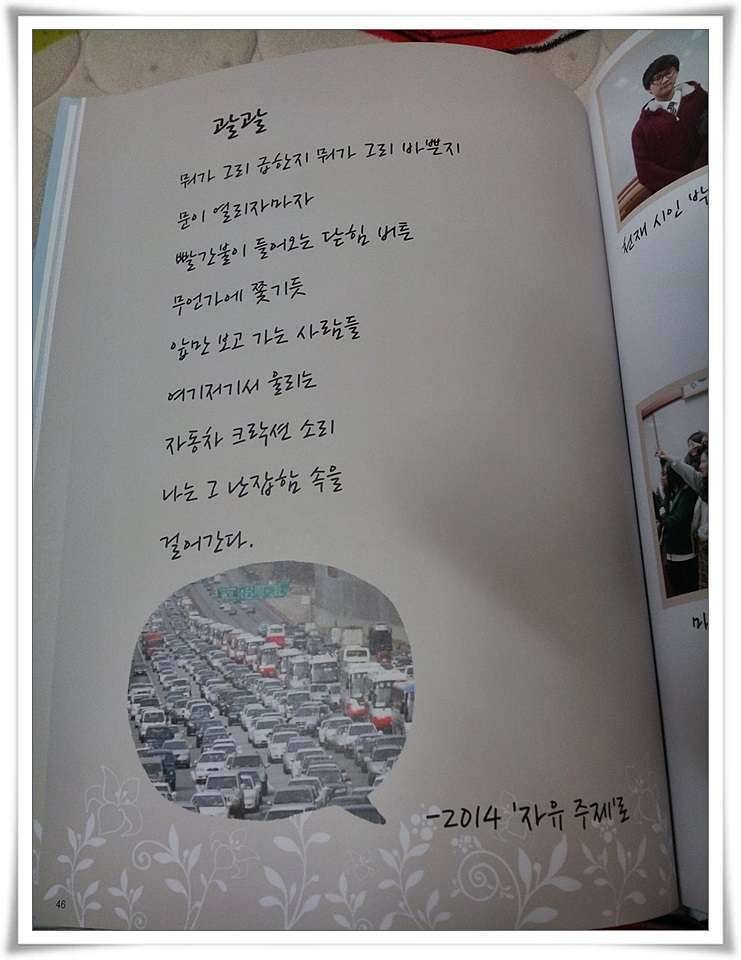 괄괄
뭐가 그리 급한지 뭐가 그리 바쁜지
문이 열리자마자
빨간불이 들어오는 닫힘 버튼
무언가에 쫓기듯
앞만 보고 가는 사람들
여기저기서 울리는
자동차 크락션 소리
나는 그 난잡함 속을
걸어간다.
-2014 '자유 주제'로
46
천재 시인 박